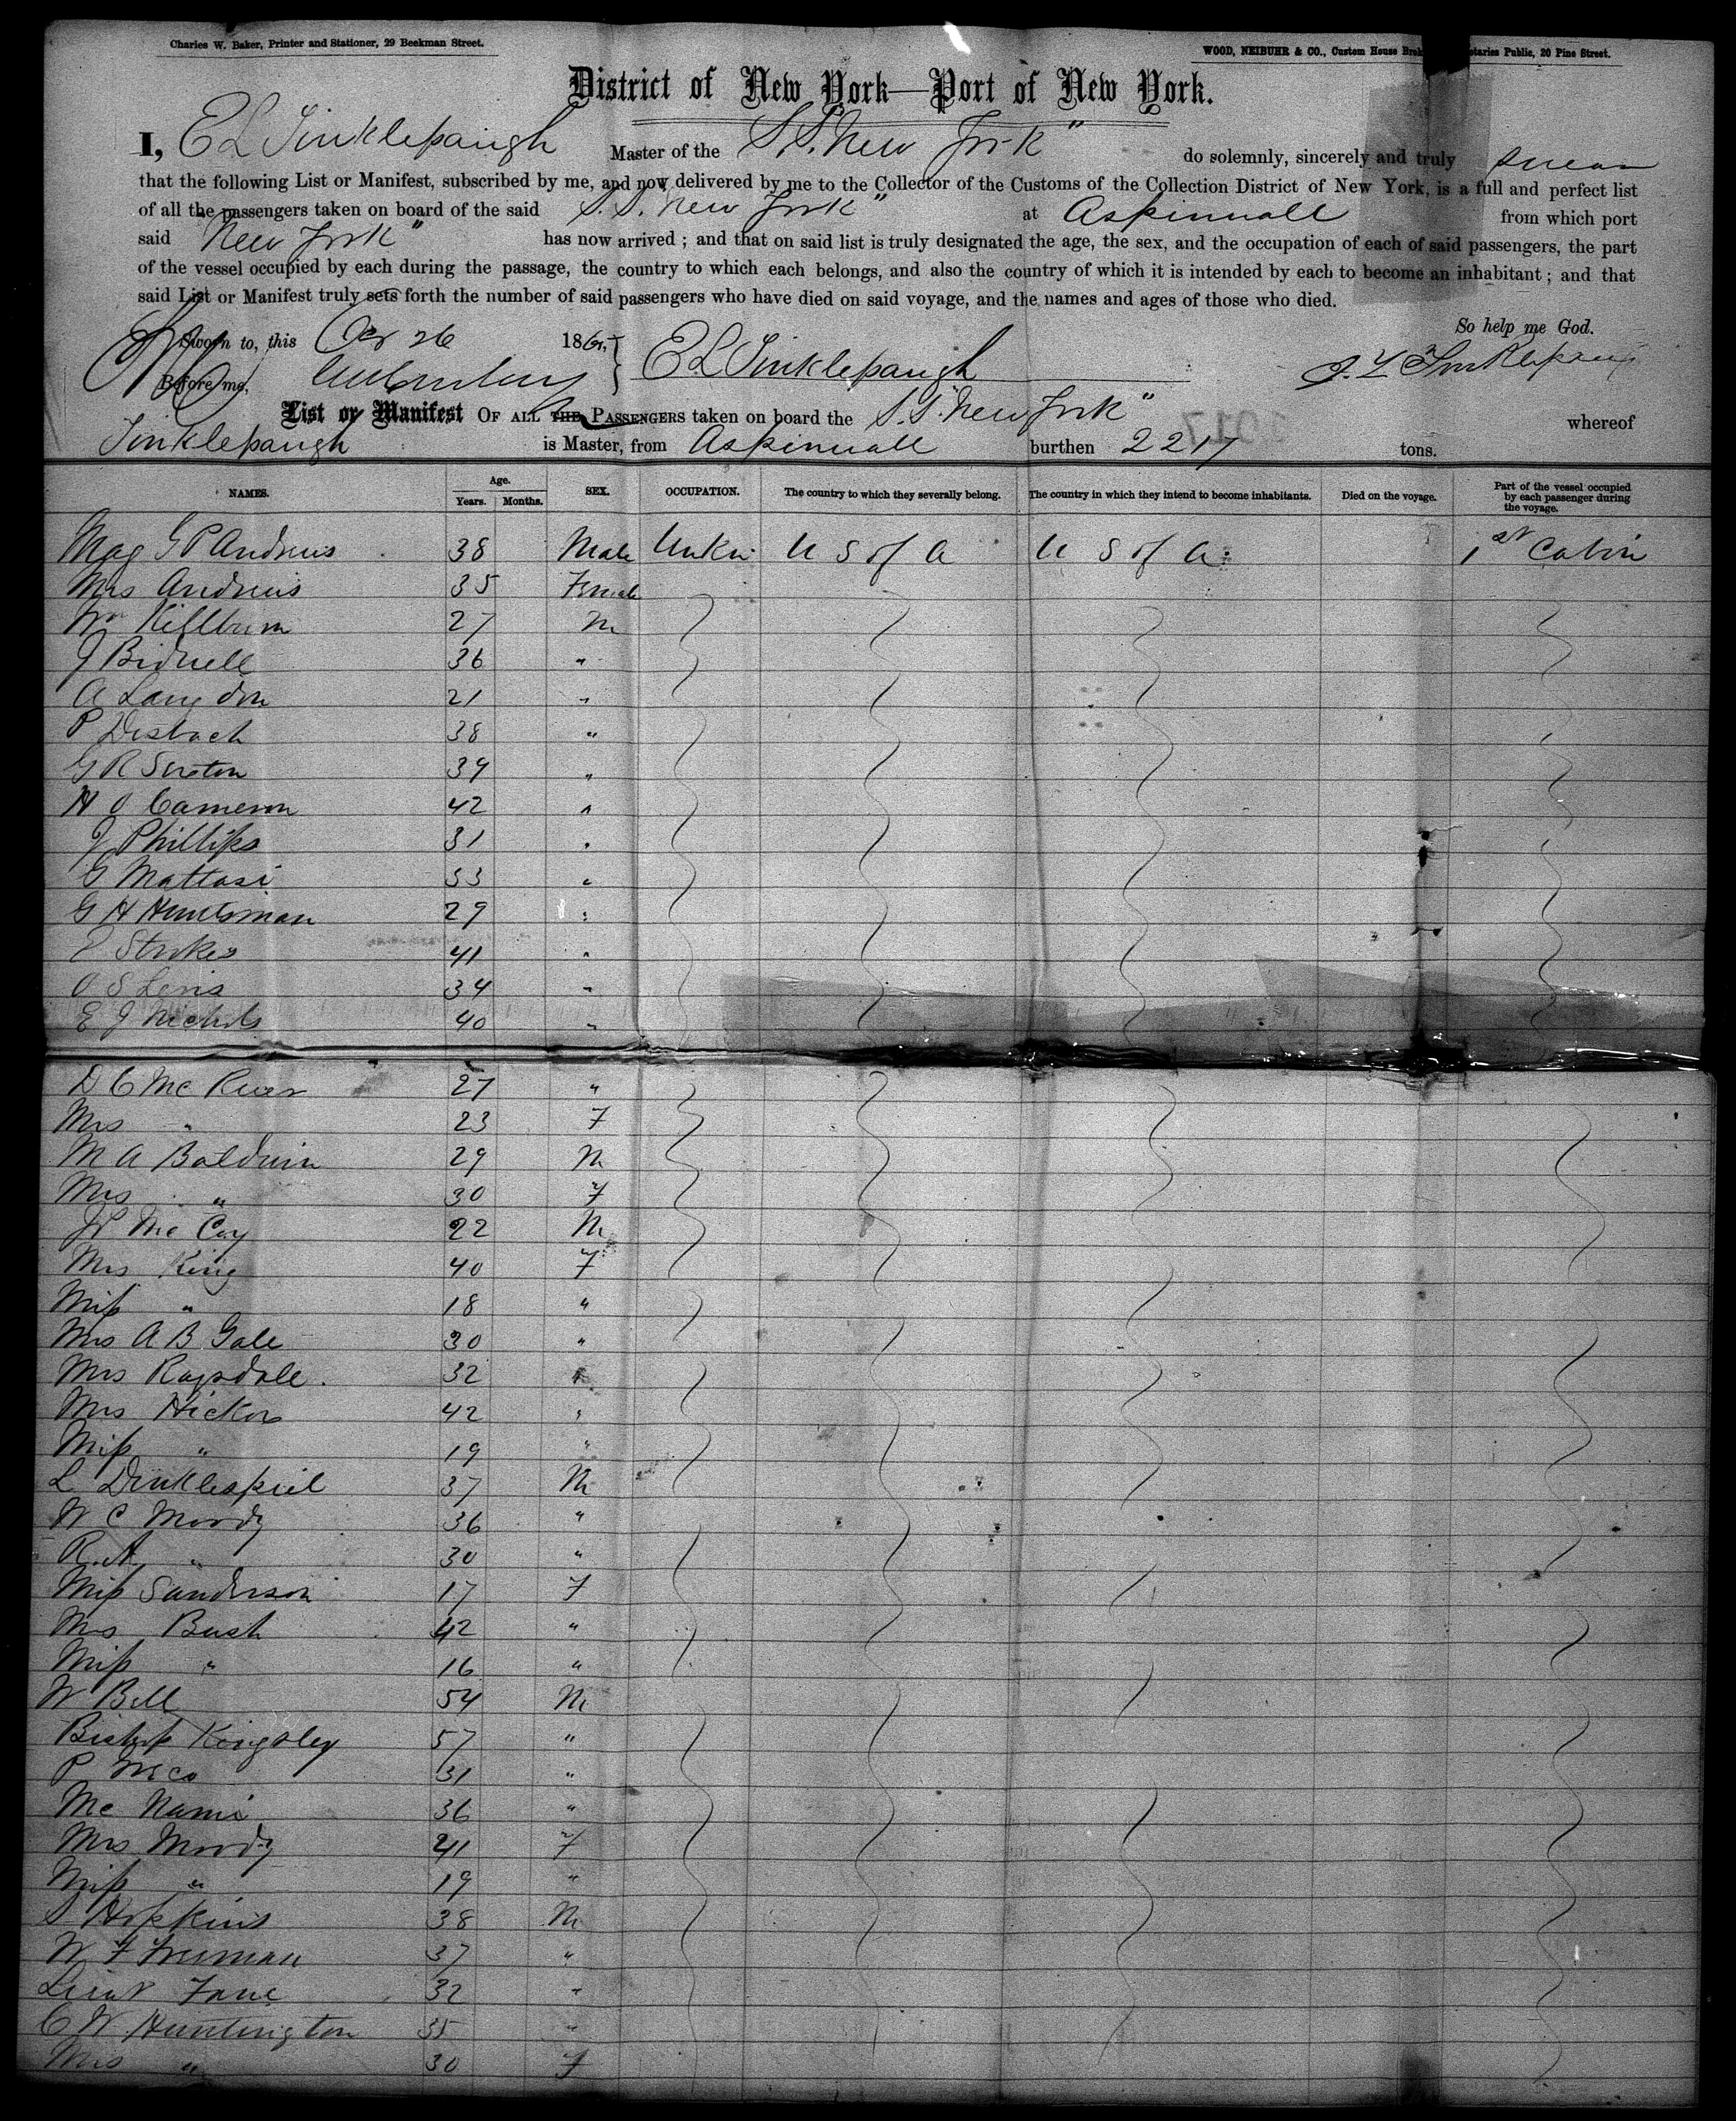 Charles W. Baker, Printer and Stationer, 29 Beekman Street.
WOOD, NEIBUHR & CO., Custom House Notaries Public, 20 Pine Street.
District of New York—Port of New York.
I, E L Tinklepaugh Master of the S.S. "New York" do solemnly, sincerely and truly swear
that the following List or Manifest, subscribed by me, and now delivered by me to the Collector of the Customs of the Collection District of New York, is a full and perfect list
of all the passengers taken on board of the said S.S. "New York" at Aspinwall from which port
said "New York" has now arrived; and that on said list is truly designated the age, the sex, and the occupation of each of said passengers, the part
of the vessel occupied by each during the passage, the country to which each belongs, and also the country of which it is intended by each to become an inhabitant; and that
said List or Manifest truly sets forth the number of said passengers who have died on said voyage, and the names and ages of those who died.
So help me God.
Sworn to, this 26 186
E L Tinklepaugh
Before me,
List or Manifest OF ALL THE PASSENGERS taken on board the S.S. "New York" whereof
Tinklepaugh is Master, from Aspinwall burthen 2217 tons.
NAMES. Age. Years. Months. SEX. OCCUPATION. The country to which they severally belong. The country in which they intend to become inhabitants. Died on the voyage. Part of the vessel occupied by each passenger during the voyage.
Maj G P Andrews 38 Male Unkn U S of A U S of A 1st Cabin
Mrs Andrews 35 Female
Wm 27 M
J Bidwell 36 "
A Langdon 21 "
P 38 "
G R 39 "
H J Cameron 42 "
J Phillips 31 "
G Mattasi 33 "
G H Huntsman 29 "
Stokes 41 "
34 "
E J Nichols 40 "
D C Mc 27 "
Mrs " 23 F
M A Baldwin 29 M
Mrs " 30 F
Mc Coy 22 M
Mrs King 40 F
Miss " 18 "
Mrs A B Gale 30 "
Mrs Ragsdale 32
Mrs Hickox 42 "
Miss " 19 "
L Dinklespiel 37 M
W C Moody 36 "
R. A. " 30 "
Miss Sanderson 17 F
Mrs Bush 42 "
Miss " 16 "
W Bell 54 M
Bishop Kingsley 57 "
P 31 "
Mc Nami 36 "
Mrs Moody 41 F
Miss " 19 "
S Hopkins 38 M
W F 37 "
Lieut 32 "
C W Huntington 35 "
Mrs " 30 F